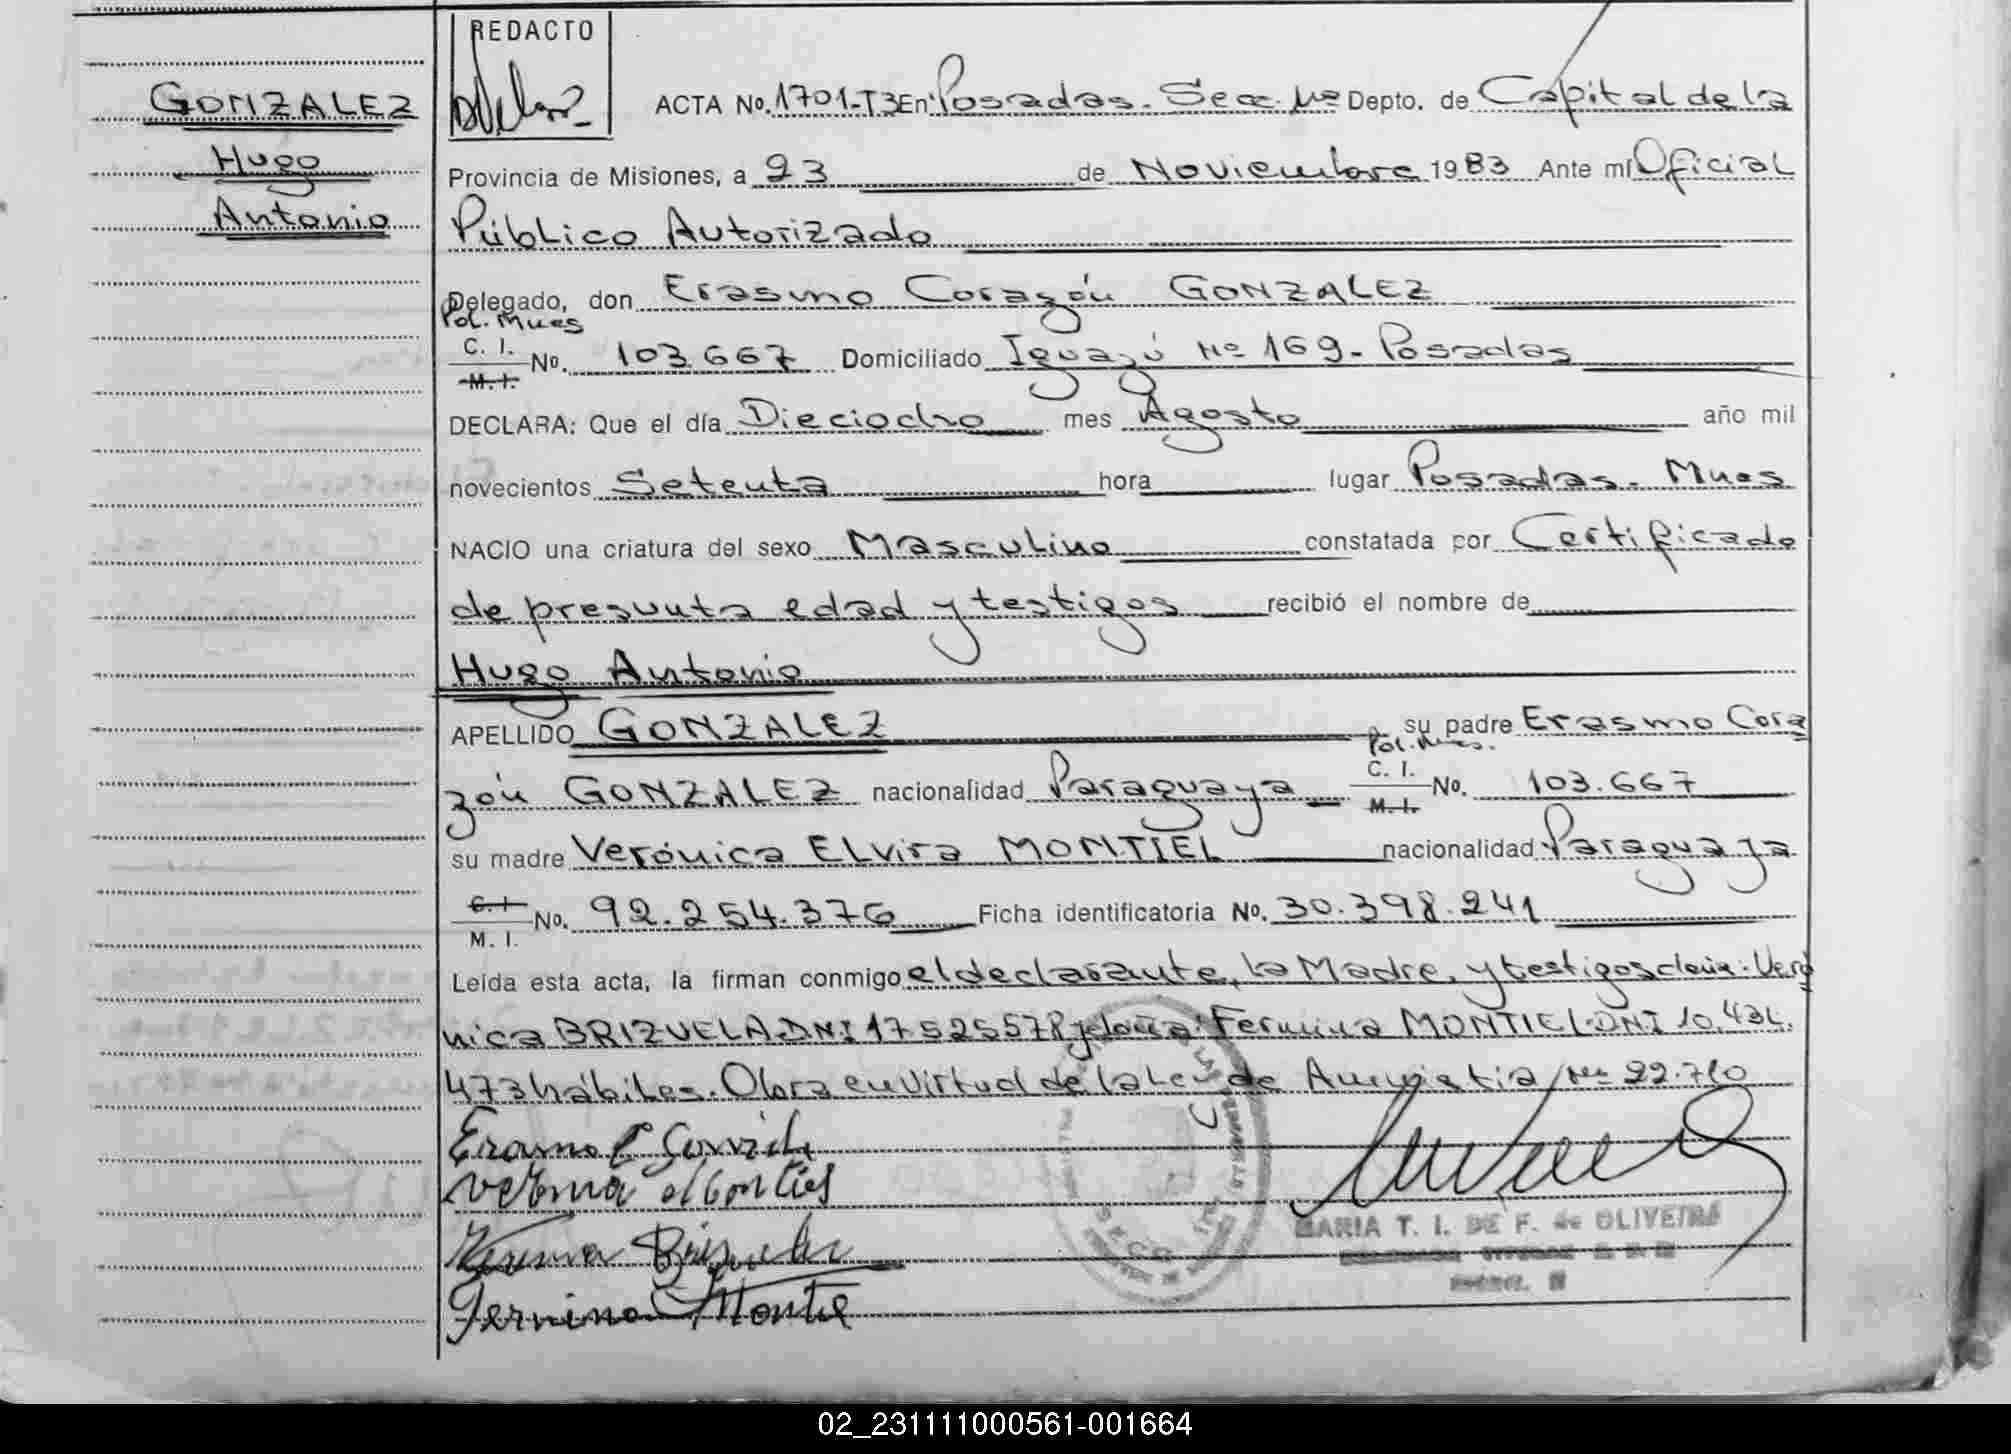 REDACTO
GONZALEZ
Hugo
Antonio
ACTA No. 1701-T3 En Posadas. Secc. 1ra Depto. de Capital de la
Provincia de Misiones, a 23 de Noviembre 1983 Ante mí Oficial
Público Autorizado
Delegado, don Erasmo Corazón GONZALEZ
Pol. Mnes
C. I.
M. I. No. 103.667 Domiciliado Iguazú Nº 169 - Posadas
DECLARA: Que el día Dieciocho mes Agosto año mil
novecientos Setenta hora lugar Posadas. Mnes
NACIO una criatura del sexo Masculino constatada por Certificado
de presunta edad y testigos recibió el nombre de
Hugo Antonio
APELLIDO GONZALEZ su padre Erasmo Cora
Pol. Mnes.
zón GONZALEZ nacionalidad Paraguaya C. I. M. I. No. 103.667
su madre Verónica ELvira MONTIEL nacionalidad Paraguaya
C. I. M. I. No. 92.254.376 Ficha identificatoria No. 30.398.241
Leída esta acta, la firman conmigo el declarante, la Madre, y testigos doña: Veró
nica BRIZUELA DNI 17525578 y doña: Fermina MONTIEL DNI 10.434.
473 hábiles. Obra en virtud de la Ley de Amnistia Nº 22.710
MARIA T. I. DE F. de OLIVEIRA
02_231111000561-001664